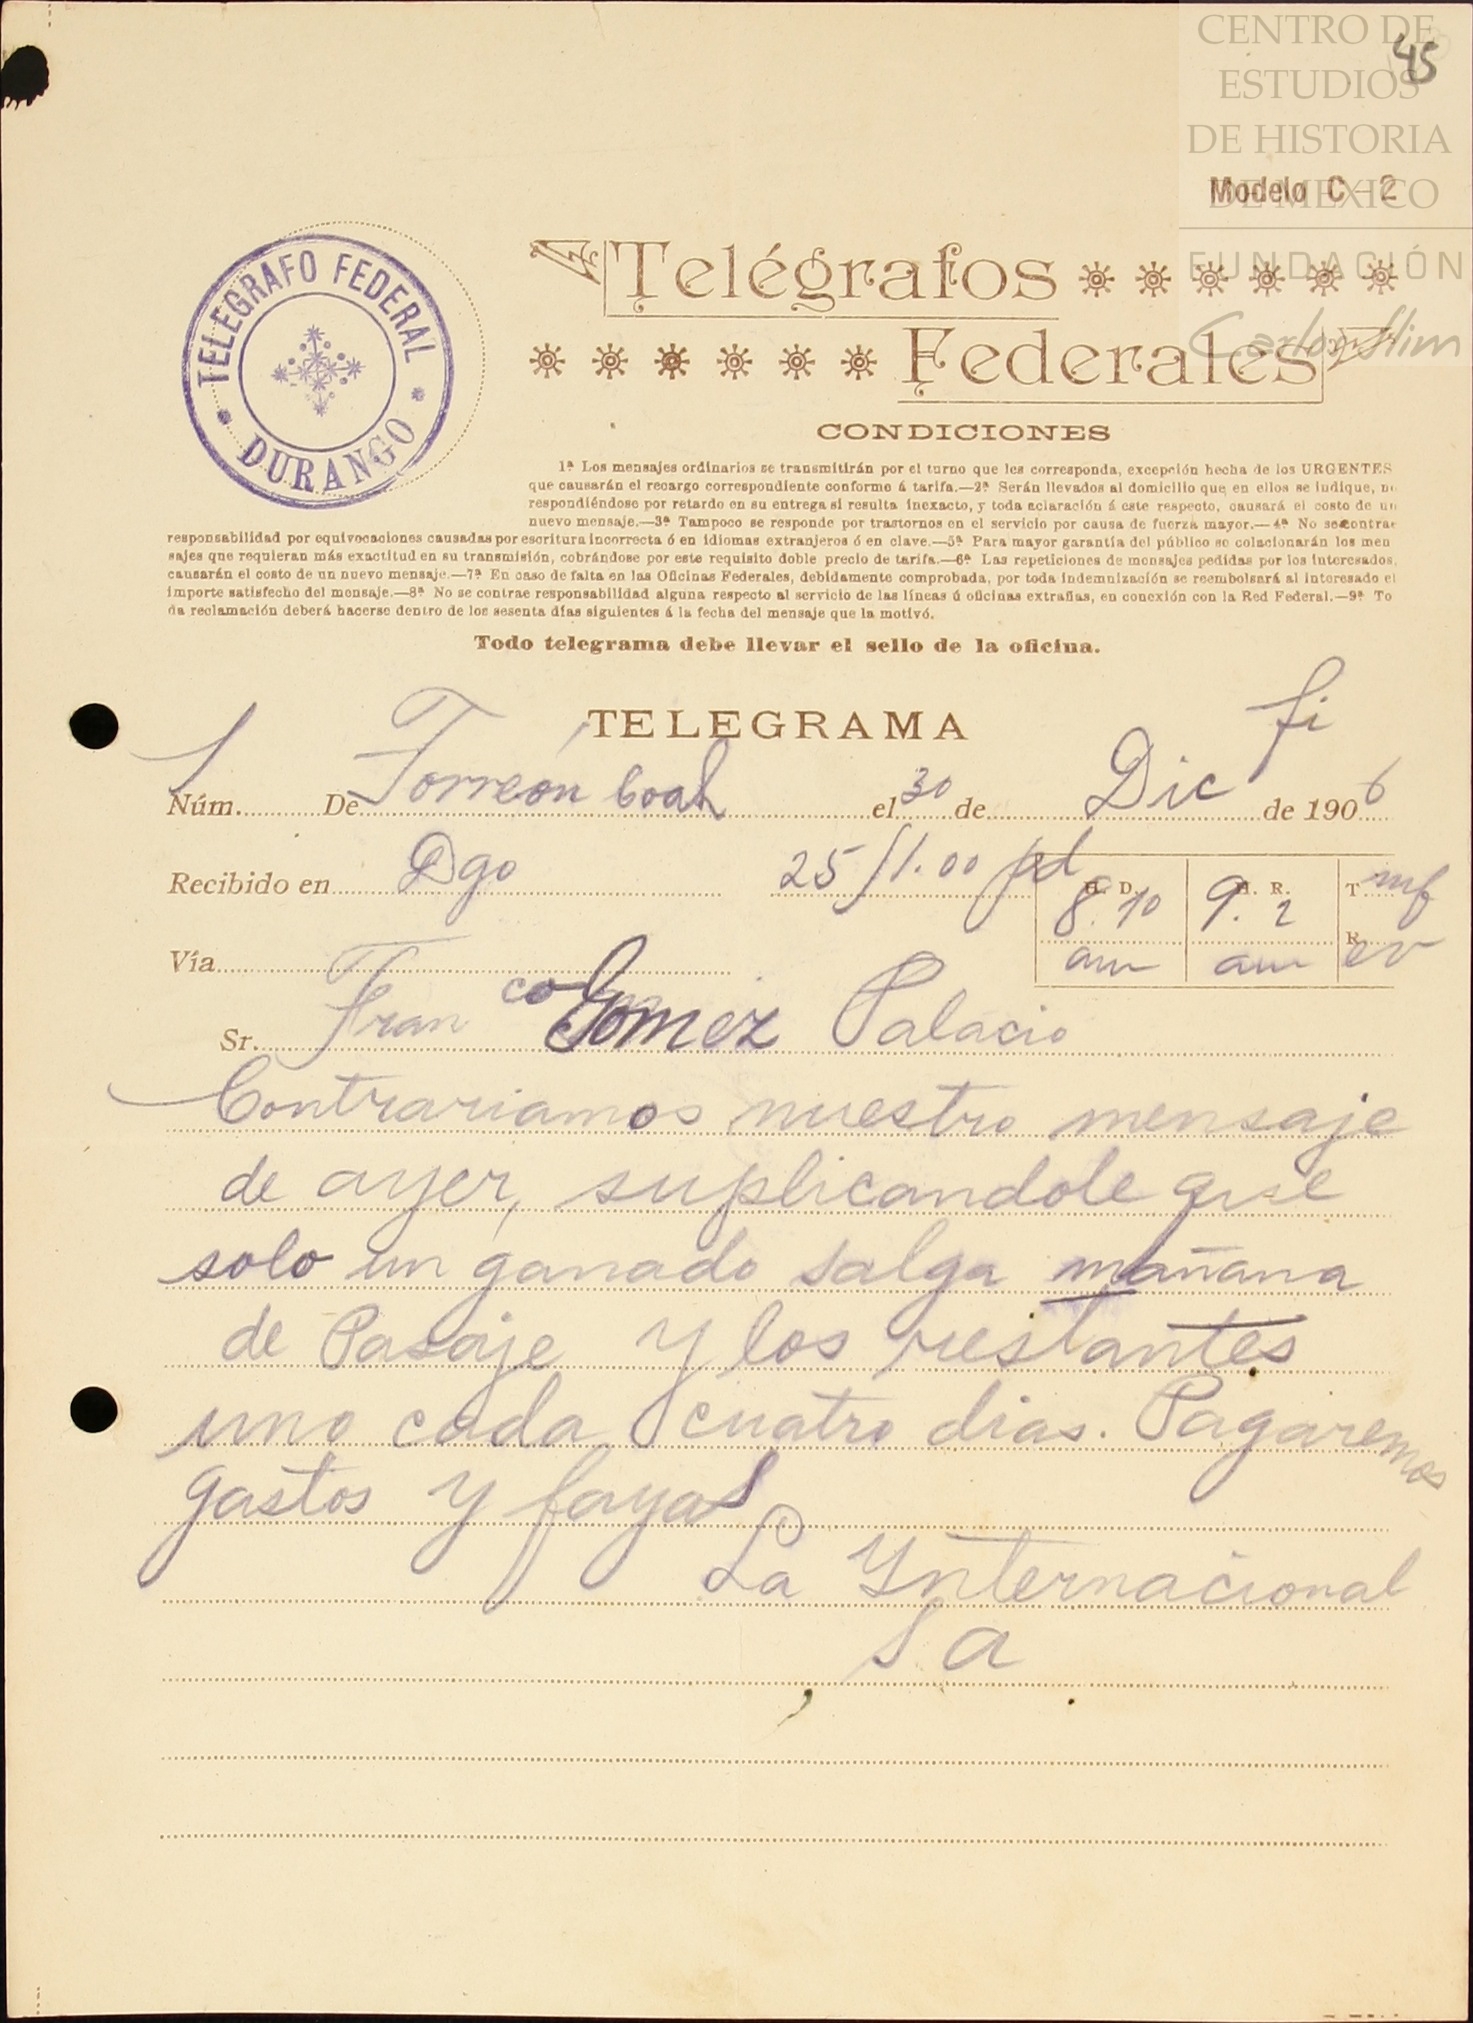 CENTRO DE
ESTUDIOS
DE HISTORIA
DE MEXICO
FUNDACIÓN
Carlos Slim
45
Modelo C - 2
TELEGRAFO FEDERAL
DURANGO
Telégrafos
Federales
CONDICIONES
1ª Los mensajes ordinarios se transmitirán por el turno que les corresponda, excepción hecha de los URGENTES
que causarán el recargo correspondiente conforme á tarifa.—2ª Serán llevados al domicilio que en ellos se indique, no
respondiéndose por retardo en su entrega si resulta inexacto, y toda aclaración á este respecto, causará el costo de un
nuevo mensaje.—3ª Tampoco se responde por trastornos en el servicio por causa de fuerza mayor.—4ª No se contrae
responsabilidad por equivocaciones causadas por escritura incorrecta ó en idiomas extranjeros ó en clave.—5ª Para mayor garantía del público se colacionarán los men
sajes que requieran más exactitud en su transmisión, cobrándose por este requisito doble precio de tarifa.—6ª Las repeticiones de mensajes pedidas por los interesados,
causarán el costo de un nuevo mensaje.—7ª En caso de falta en las Oficinas Federales, debidamente comprobada, por toda indemnización se reembolsará al interesado el
importe satisfecho del mensaje.—8ª No se contrae responsabilidad alguna respecto al servicio de las líneas ú oficinas extrañas, en conexión con la Red Federal.—9ª To
da reclamación deberá hacerse dentro de los sesenta días siguientes á la fecha del mensaje que la motivó.
Todo telegrama debe llevar el sello de la oficina.
TELEGRAMA
fi
Núm. 1 De Torreón Coah el 30 de Dic de 1906
Recibido en Dgo 25/1.00 pd
H. D. 8.10 am H. R. 9.2 am T mf R ev
Vía
Sr. Franco Gomez Palacio
Contrariamos nuestro mensaje
de ayer, suplicandole que
solo un ganado salga mañana
de Pasaje y los restantes
uno cada cuatro dias. Pagaremos
gastos y fayas
La Ynternacional
S a